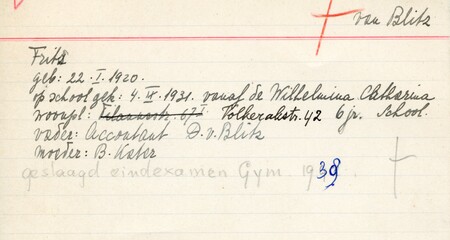 van Blitz
Frits
geb: 22. I. 1920.
op school gek: 4. IV. 1931. vanaf de Wilhelmina Catharina
woonpl: 67 I Volkerakstr. 42 6 jr. School.
vader: Accountant D. v. Blitz
moeder: B. Kater
geslaagd eindexamen Gym 1938.